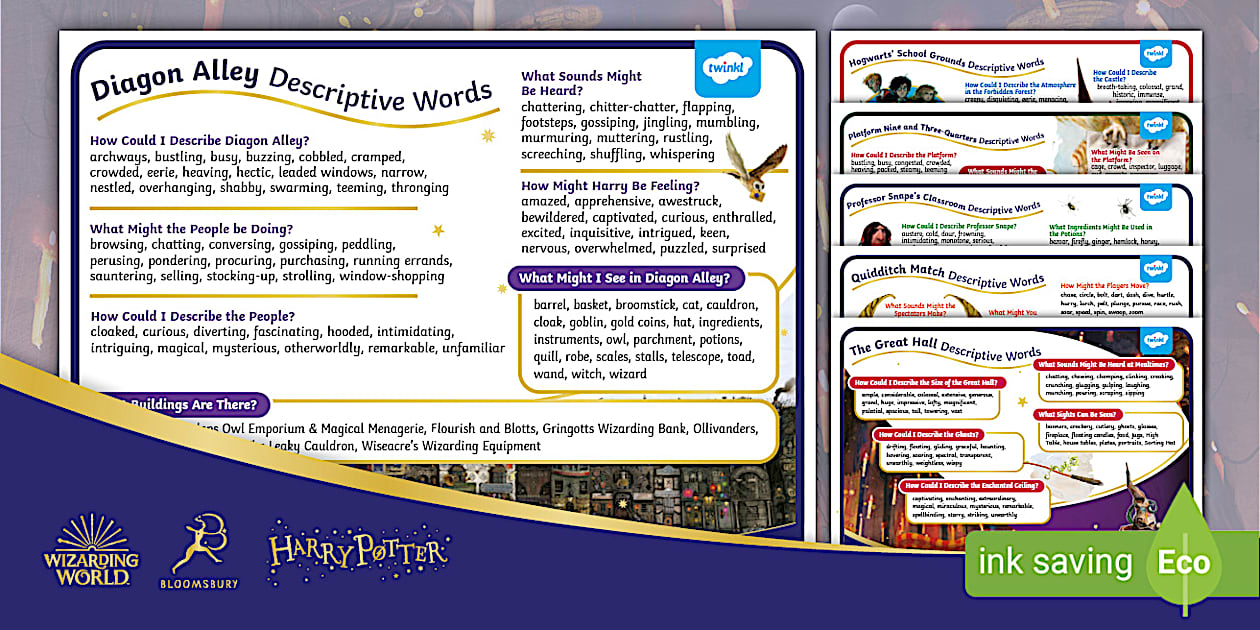 Diagon Alley Descriptive Words
twinkl
How Could I Describe Diagon Alley?
archways, bustling, busy, buzzing, cobbled, cramped,
crowded, eerie, heaving, hectic, leaded windows, narrow,
nestled, overhanging, shabby, swarming, teeming, thronging
What Might the People be Doing?
browsing, chatting, conversing, gossiping, peddling,
perusing, pondering, procuring, purchasing, running errands,
sauntering, selling, stocking-up, strolling, window-shopping
How Could I Describe the People?
cloaked, curious, diverting, fascinating, hooded, intimidating,
intriguing, magical, mysterious, otherworldly, remarkable, unfamiliar
What Sounds Might
Be Heard?
chattering, chitter-chatter, flapping,
footsteps, gossiping, jingling, mumbling,
murmuring, muttering, rustling,
screeching, shuffling, whispering
How Might Harry Be Feeling?
amazed, apprehensive, awestruck,
bewildered, captivated, curious, enthralled,
excited, inquisitive, intrigued, keen,
nervous, overwhelmed, puzzled, surprised
What Might I See in Diagon Alley?
barrel, basket, broomstick, cat, cauldron,
cloak, goblin, gold coins, hat, ingredients,
instruments, owl, parchment, potions,
quill, robe, scales, stalls, telescope, toad,
wand, witch, wizard
Buildings Are There?
Owl Emporium & Magical Menagerie, Flourish and Blotts, Gringotts Wizarding Bank, Ollivanders,
Leaky Cauldron, Wiseacre's Wizarding Equipment
Hogwarts' School Grounds Descriptive Words
twinkl
How Could I Describe the Atmosphere
in the Forbidden Forest?
creepy, disquieting, eerie, menacing,
How Could I Describe
the Castle?
breath-taking, colossal, grand,
historic, immense,
Platform Nine and Three-Quarters Descriptive Words
twinkl
How Could I Describe the Platform?
bustling, busy, congested, crowded,
heaving, packed, steamy, teeming
What Sounds Might the
What Might Be Seen on
the Platform?
cage, crowd, inspector, luggage,
Professor Snape's Classroom Descriptive Words
twinkl
How Could I Describe Professor Snape?
austere, cold, dour, frowning,
intimidating, monotone, serious,
What Ingredients Might Be Used in
the Potions?
bezoar, firefly, ginger, hemlock, honey,
Quidditch Match Descriptive Words
twinkl
What Sounds Might the
Spectators Make?
What Might You
How Might the Players Move?
chase, circle, bolt, dart, dash, dive, hurtle,
hurry, lurch, pelt, plunge, pursue, race, rush,
soar, speed, spin, swoop, zoom
The Great Hall Descriptive Words
twinkl
How Could I Describe the Size of the Great Hall?
ample, considerable, colossal, extensive, generous,
grand, huge, impressive, lofty, magnificent,
palatial, spacious, tall, towering, vast
How Could I Describe the Ghosts?
drifting, floating, gliding, graceful, haunting,
hovering, soaring, spectral, transparent,
unearthly, weightless, wispy
How Could I Describe the Enchanted Ceiling?
captivating, enchanting, extraordinary,
magical, miraculous, mysterious, remarkable,
spellbinding, starry, striking, unearthly
What Sounds Might Be Heard at Mealtimes?
chatting, chewing, chomping, clinking, creaking,
crunching, glugging, gulping, laughing,
munching, pouring, scraping, sipping
What Sights Can Be Seen?
banners, crockery, cutlery, ghosts, glasses,
fireplace, floating candles, food, jugs, High
Table, house tables, plates, portraits, Sorting Hat
WIZARDING
WORLD
BLOOMSBURY
HARRY POTTER
ink saving
Eco